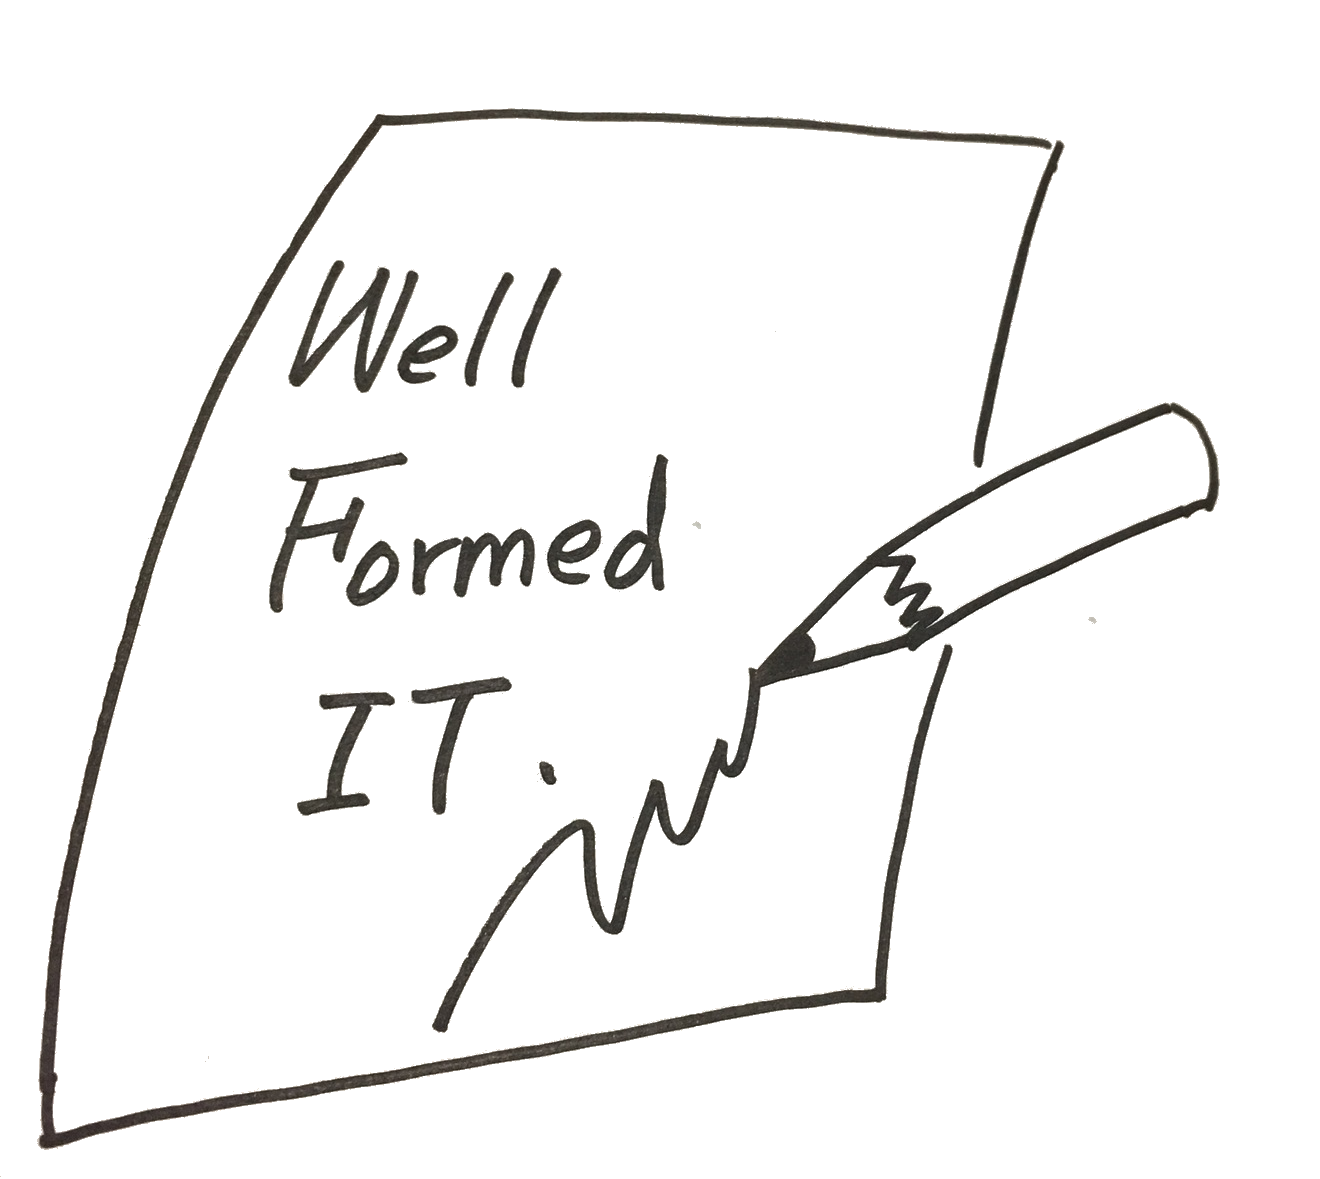 Well
Formed
IT.